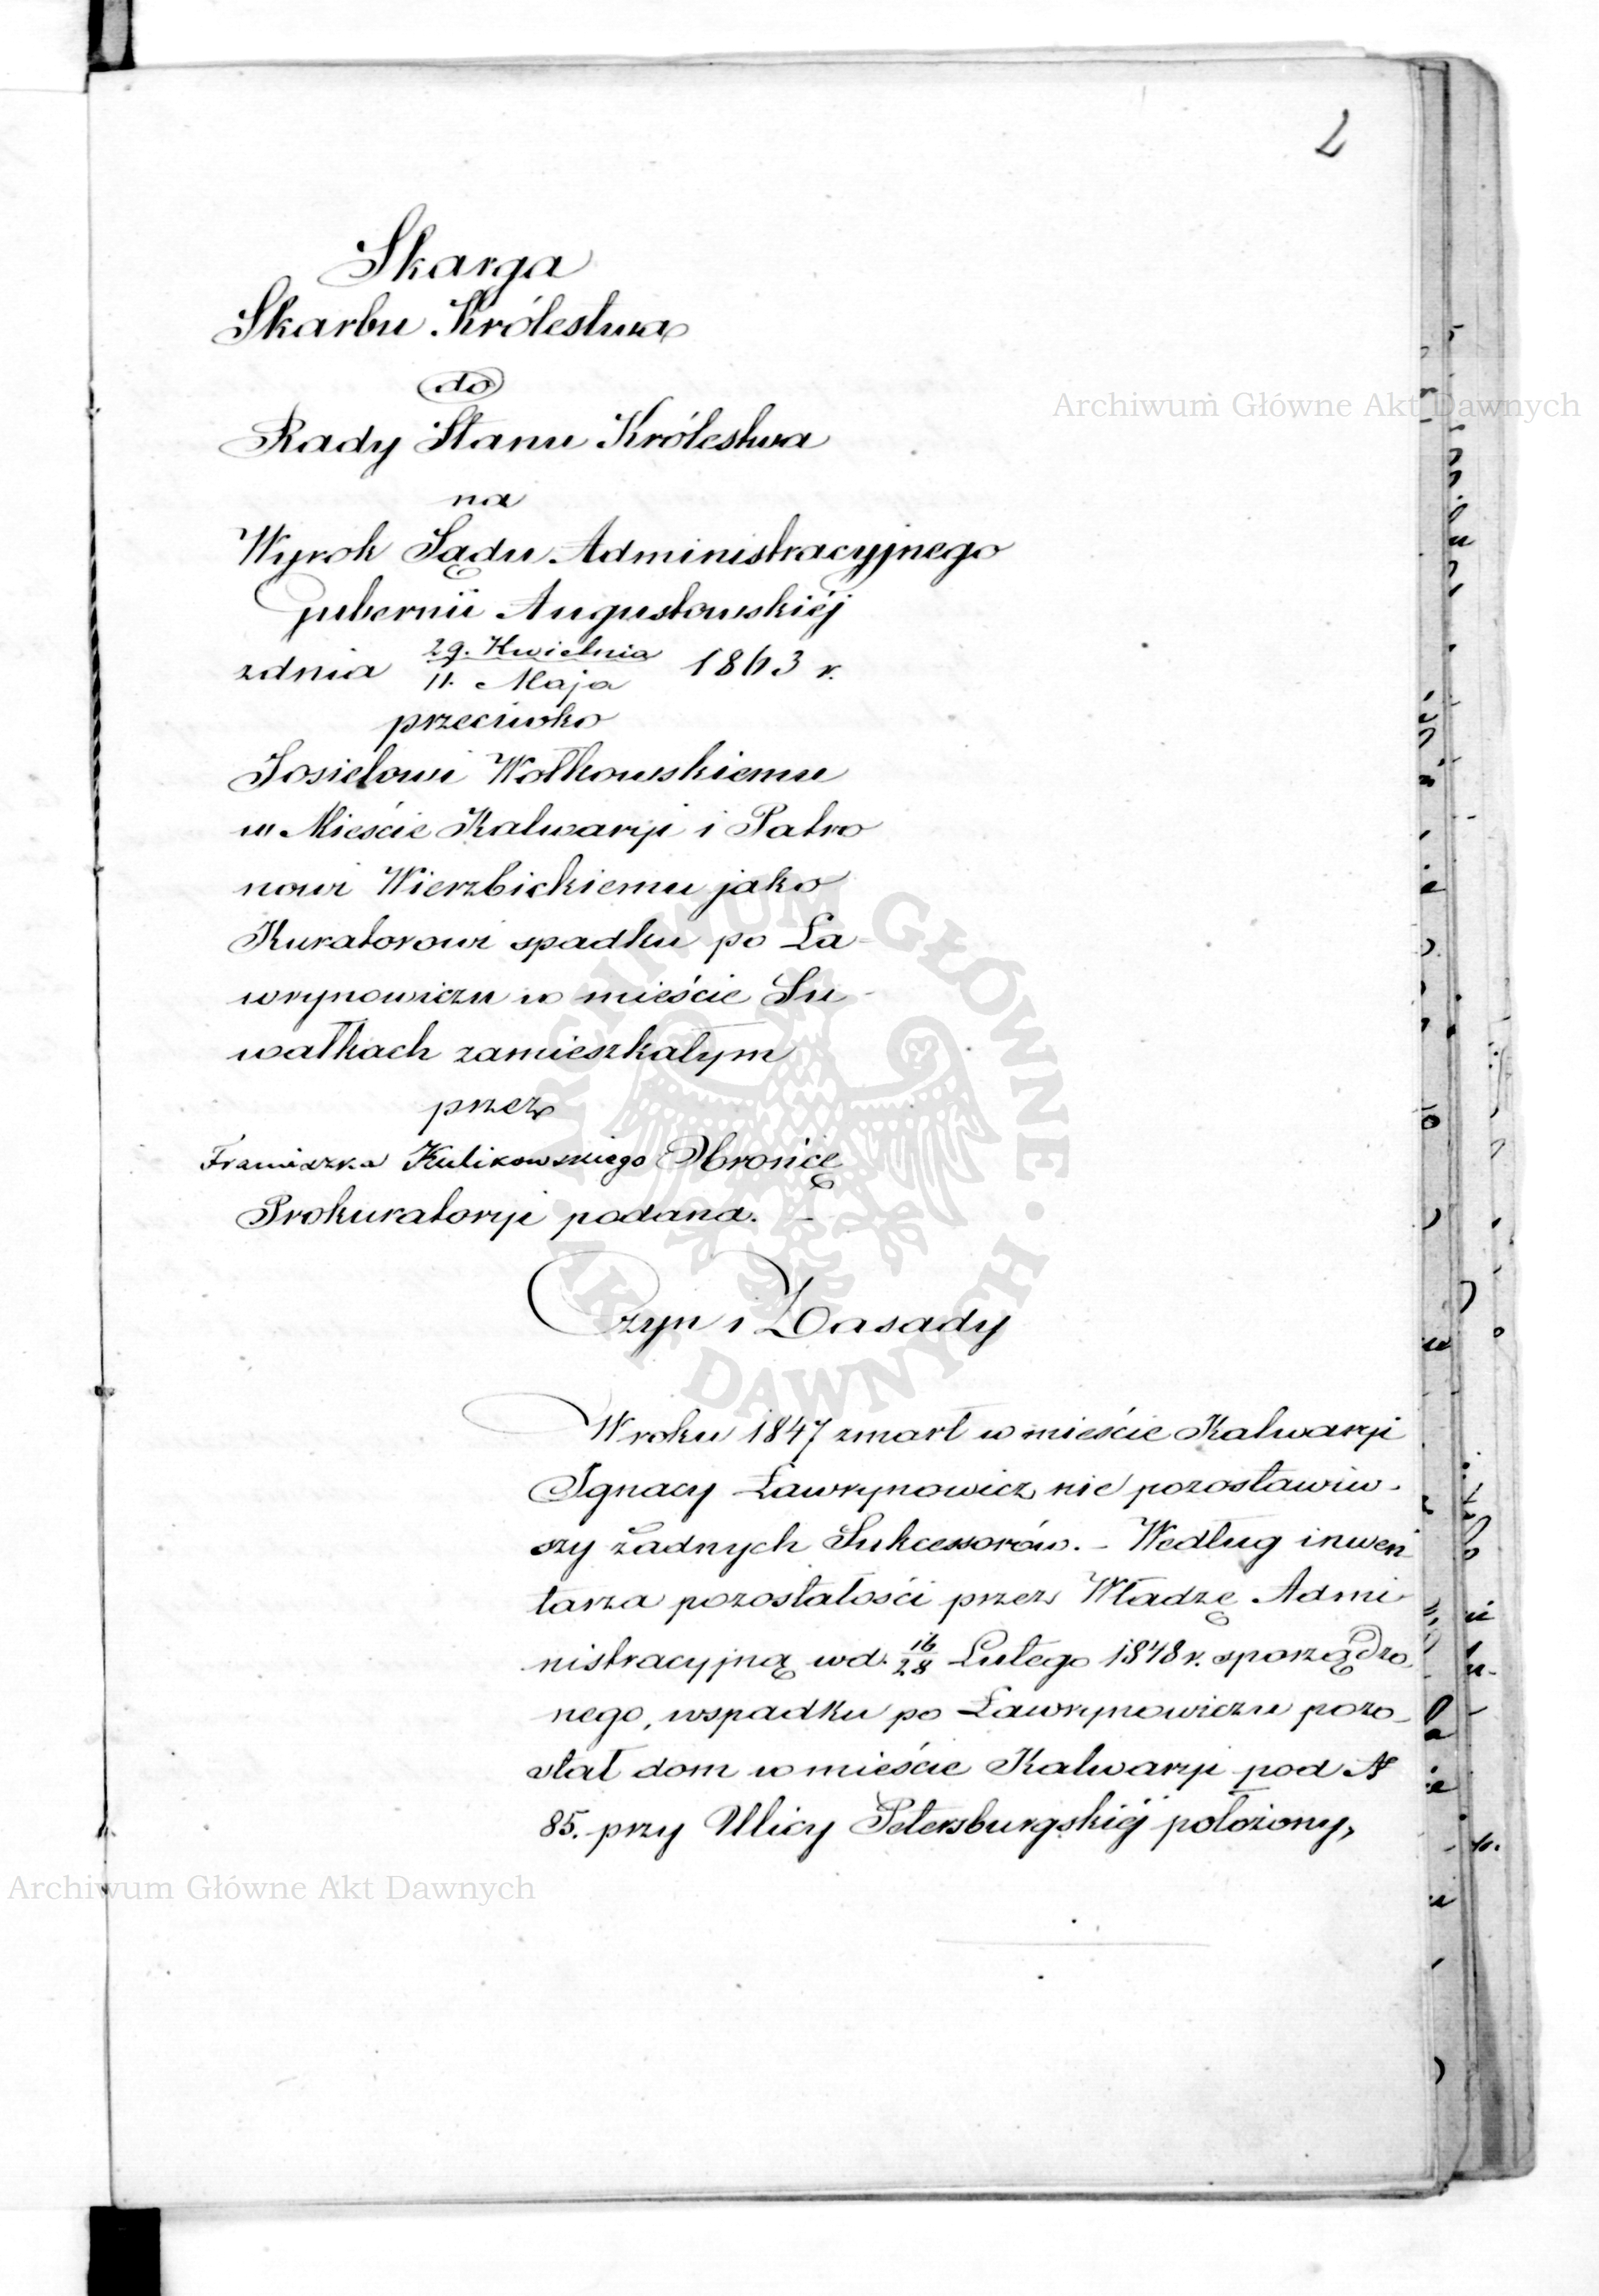 2
Skarga
Skarbu Królestwa
do
Rady Stanu Królestwa
na
Wyrok Sądu Administracyjnego
Gubernii Augustowskiéj
zdnia 29. Kwietnia / 11. Maja 1863 r.
przeciwko
Josielowi Wołkowskiemu
w Mieście Kalwaryi i Patro
nowi Wierzbickiemu jako
Kuratorowi spadku po Ła-
wrynowiczu w mieście Su-
wałkach zamieszkałym
przez
Franciszka Kulikowskiego Obrońcę
Prokuratoryi podana. -
Czyn i Zasady
W roku 1847 zmarł w mieście Kalwaryi
Ignacy Ławrynowicz nie pozostawiw-
szy żadnych Sukcessorów. - Według inwen
tarza pozostałości przez Władzę Admi-
nistracyjną wd. 16/28 Lutego 1848 r. sporządzo
nego, wspadku po Ławrynowiczu pozo-
stał dom w mieście Kalwaryi pod N
85. przy Ulicy Petersburgskiéj położony,
Archiwum Główne Akt Dawnych
Archiwum Główne Akt Dawnych
ARCHIWUM GŁÓWNE · AKT DAWNYCH ·